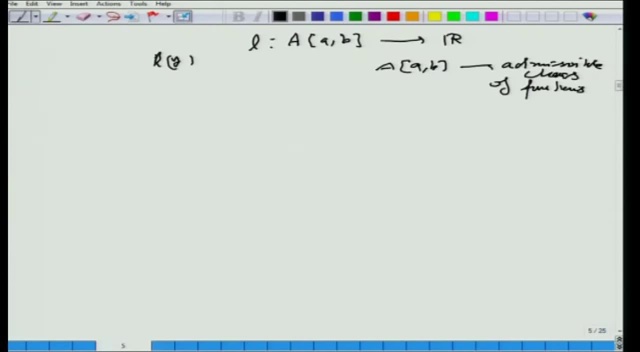 File Edit View Insert Actions Tools Help
l : A[a,b] ⟶ ℝ
l(y)
A[a,b] — admissible
class
of functions
5 / 25
5